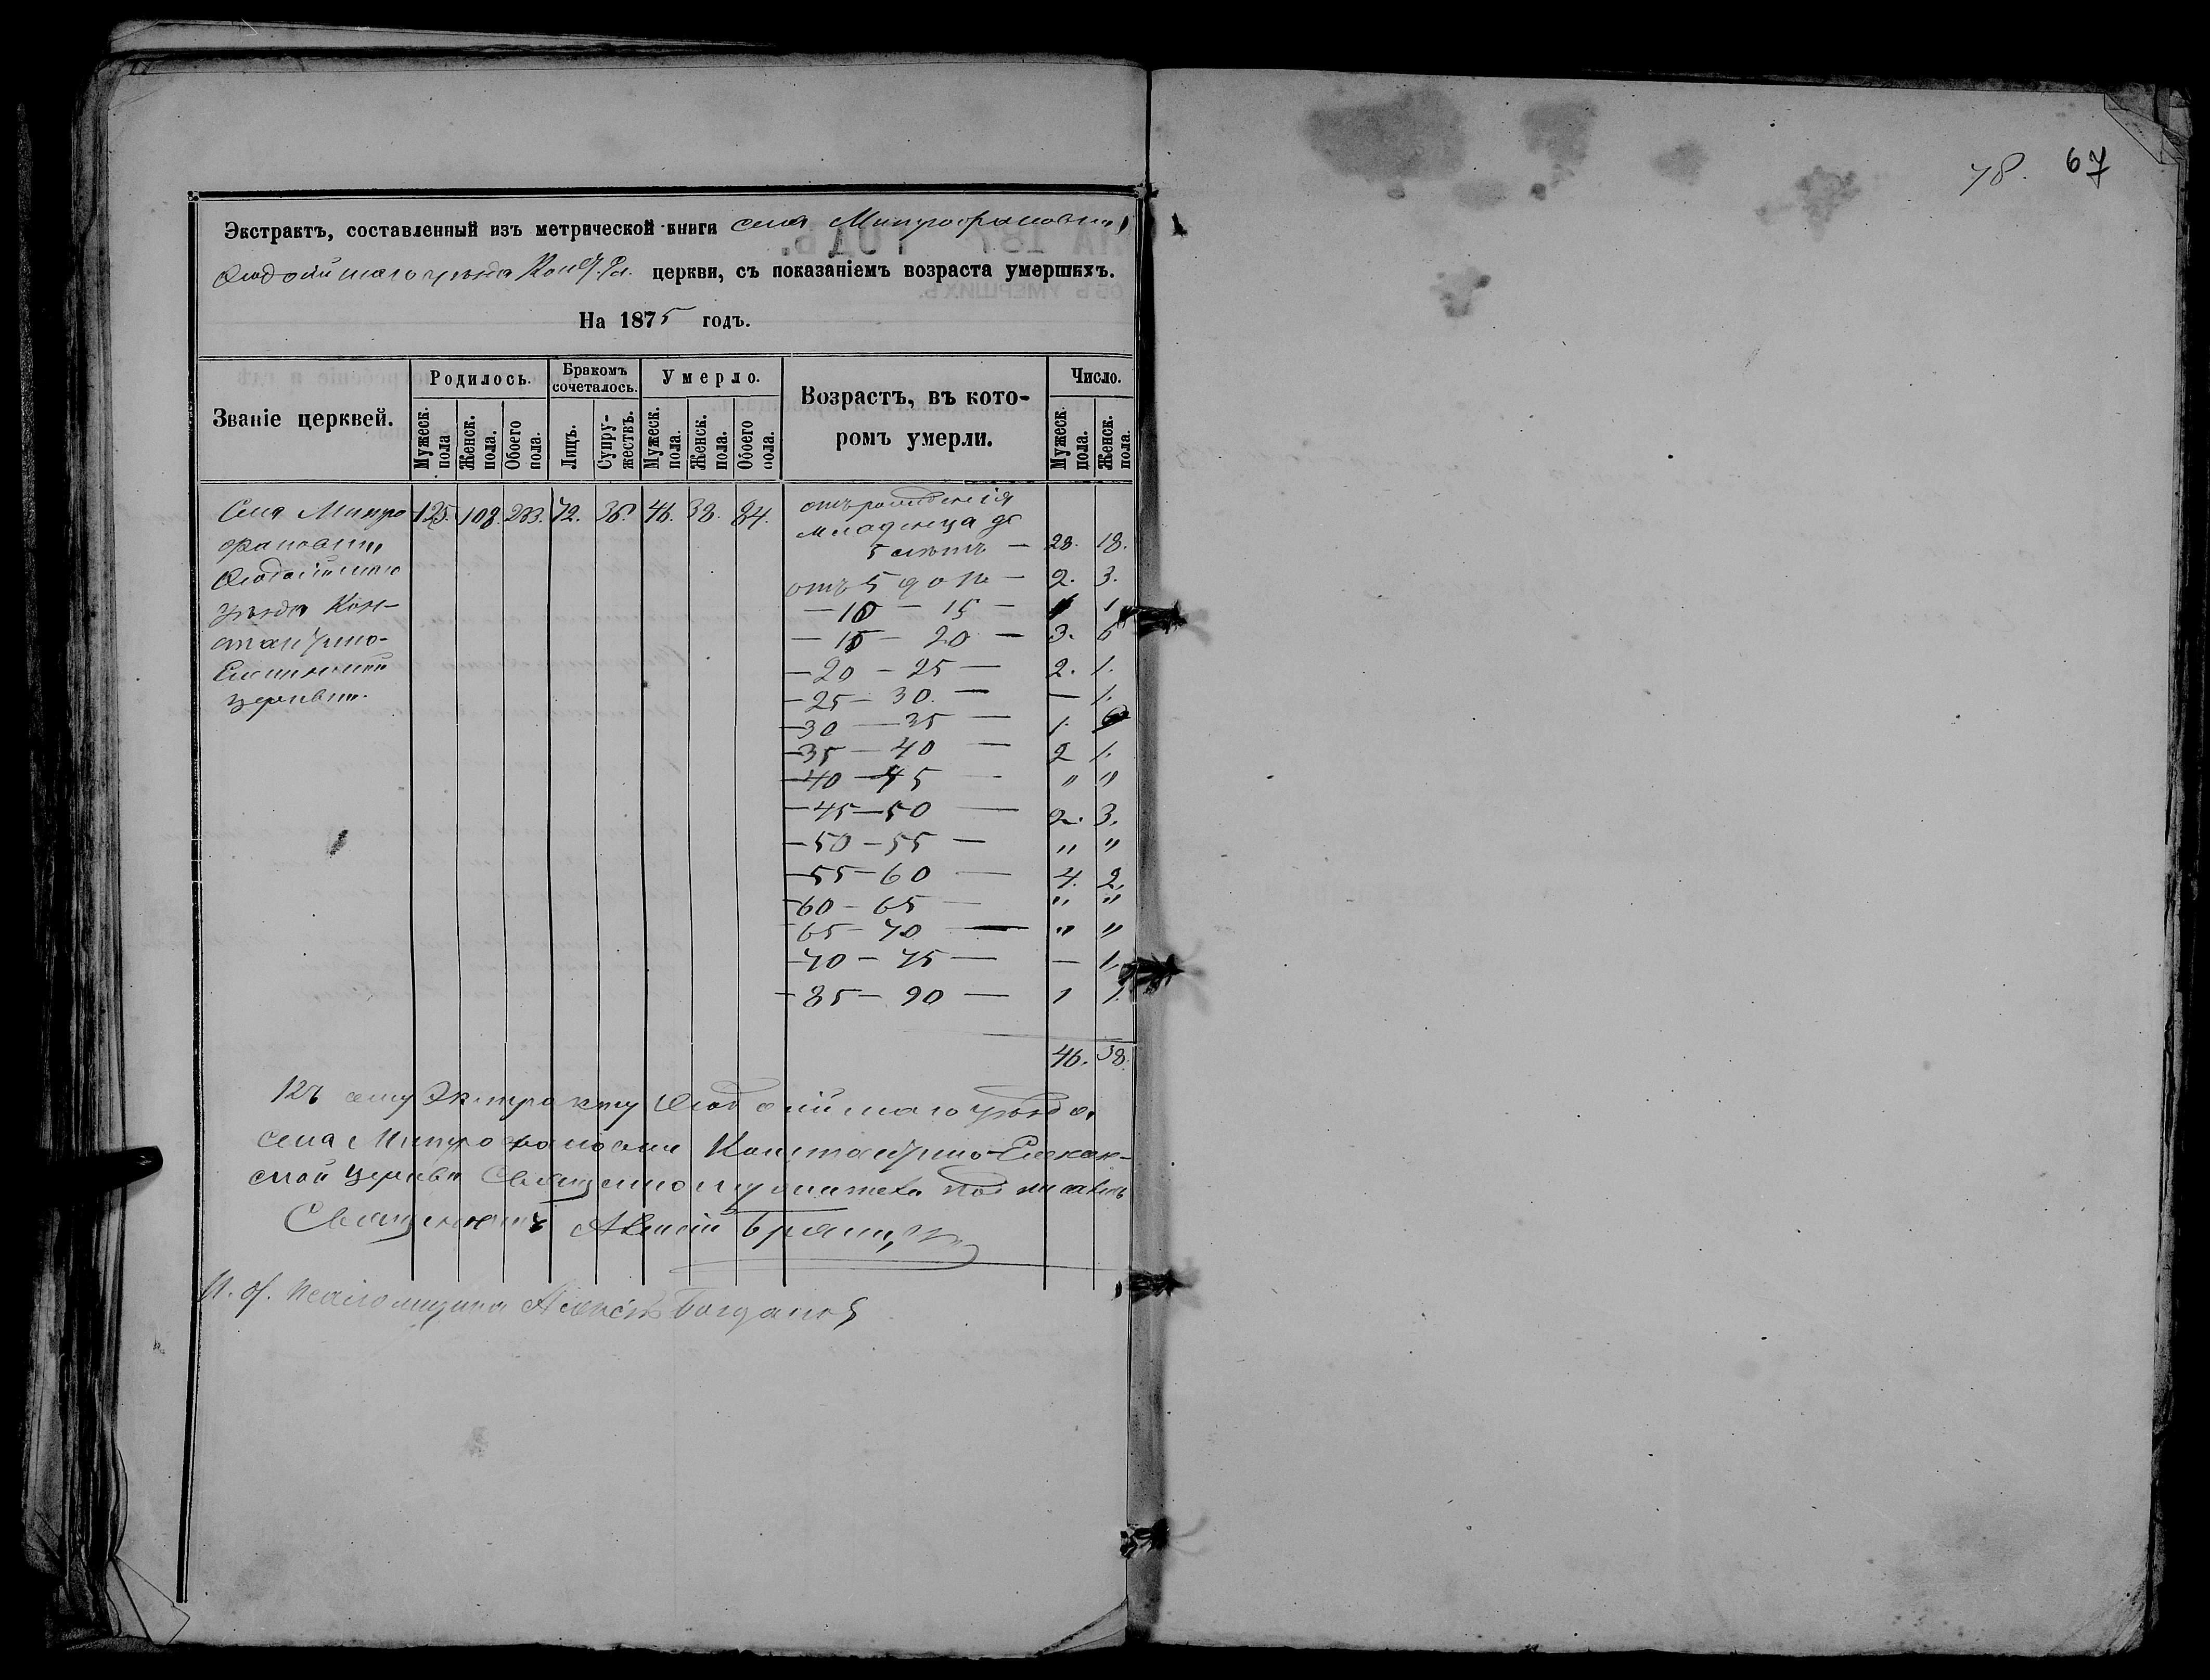 78. 67
Экстрактъ, составленный изъ метрической книги села Митрофановки,
Феодосійскаго уѣзда церкви, съ показаніемъ возраста умершихъ.
На 1875 годъ.
Званіе церквей.
Родилось.
Бракомъ сочеталось.
Умерло.
Возрастъ, въ которомъ умерли.
Число.
Мужеск. пола
Женск. пола.
Обоего пола.
Лицъ.
Супружествъ.
Мужеск. пола.
Женск. пола.
Обоего пола.
Мужеск. пола.
Женск. пола.
Села Митро
фановки
Феодосійскаго
уѣзда Кон-
стантино-
Еленинской
церкви.
125. 108. 233. 72. 36. 46. 38. 84.
отъ рожденія
младенца до
5 лѣтъ — 28. 18.
отъ 5 до 10 — 2. 3.
— 10 — 15 — 1 1
— 15 — 20 — 3. 6
— 20 — 25 — 2. 1.
— 25 — 30. — — 1.
— 30 — 35 — 1.
— 35 — 40 — 2 1.
— 40 — 45 — " "
— 45 — 50 — 2. 3.
— 50 — 55 — " "
— 55 — 60 — 4. 2.
— 60 — 65 — " "
— 65 — 70 — " "
— 70 — 75 — — 1.
— 85 — 90 — 1 1.
46. 38.
Къ сему Экстракту Феодосійскаго уѣзда
села Митрофановки Константино-Еленин-
ской церкви Священнослужители подписались
Священникъ Алексій
И. д. псаломщика Алексѣй Богдановъ